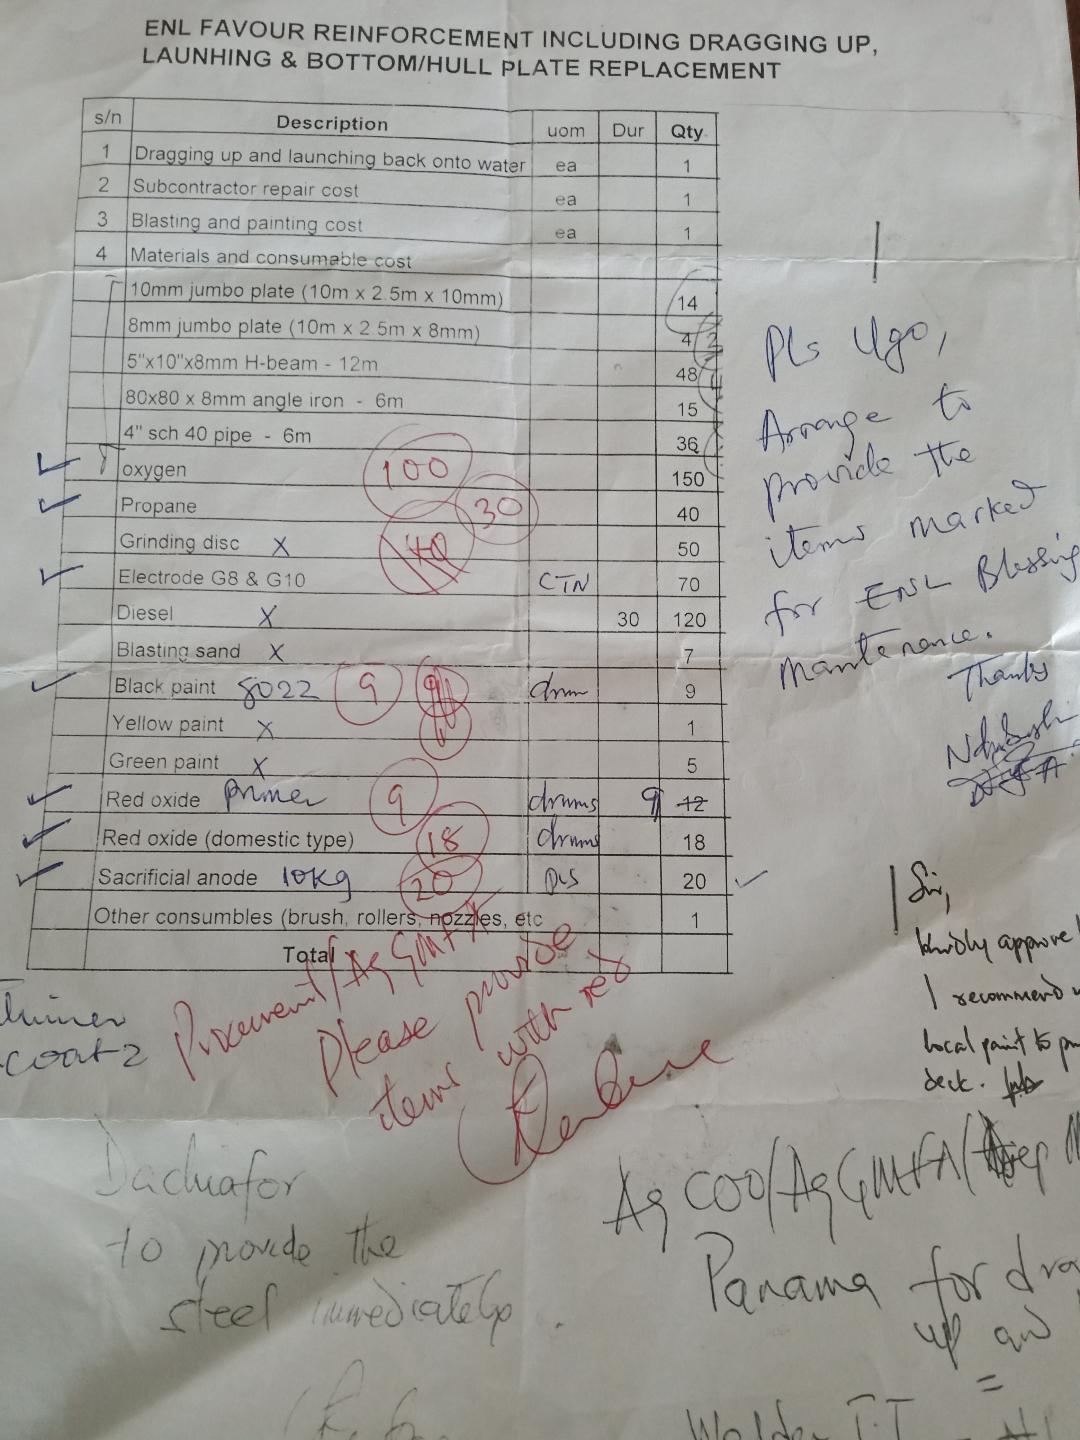 ENL FAVOUR REINFORCEMENT INCLUDING DRAGGING UP,
LAUNHING & BOTTOM/HULL PLATE REPLACEMENT
s/n Description uom Dur Qty
1 Dragging up and launching back onto water ea 1
2 Subcontractor repair cost ea 1
3 Blasting and painting cost ea 1
4 Materials and consumable cost
10mm jumbo plate (10m x 2.5m x 10mm) 14
8mm jumbo plate (10m x 2.5m x 8mm) 4
5"x10"x8mm H-beam - 12m 48
80x80 x 8mm angle iron - 6m 15
4" sch 40 pipe - 6m 36
oxygen 100 150
Propane 30 40
Grinding disc X 50
Electrode G8 & G10 CTN 70
Diesel X 30 120
Blasting sand X 7
Black paint 8022 9 drum 9
Yellow paint X 1
Green paint X 5
Red oxide primer 9 drums 9 12
Red oxide (domestic type) 18 drums 18
Sacrificial anode 10kg 20 pcs 20
Other consumbles (brush, rollers, nozzles, etc 1
Total
Pls Ugo,
Arrange to
provide the
items marked
for ENL Blessing
maintenance.
Thanks
Sir,
Kindly approve
I recommend
local paint to
deck.
Thinner
coat 2
Procurement/Ag GMFA
Please provide
items with red
Dachiafor
to provide the
steel immediately.
Ag COO/Ag GMFA/
Panama for
up and